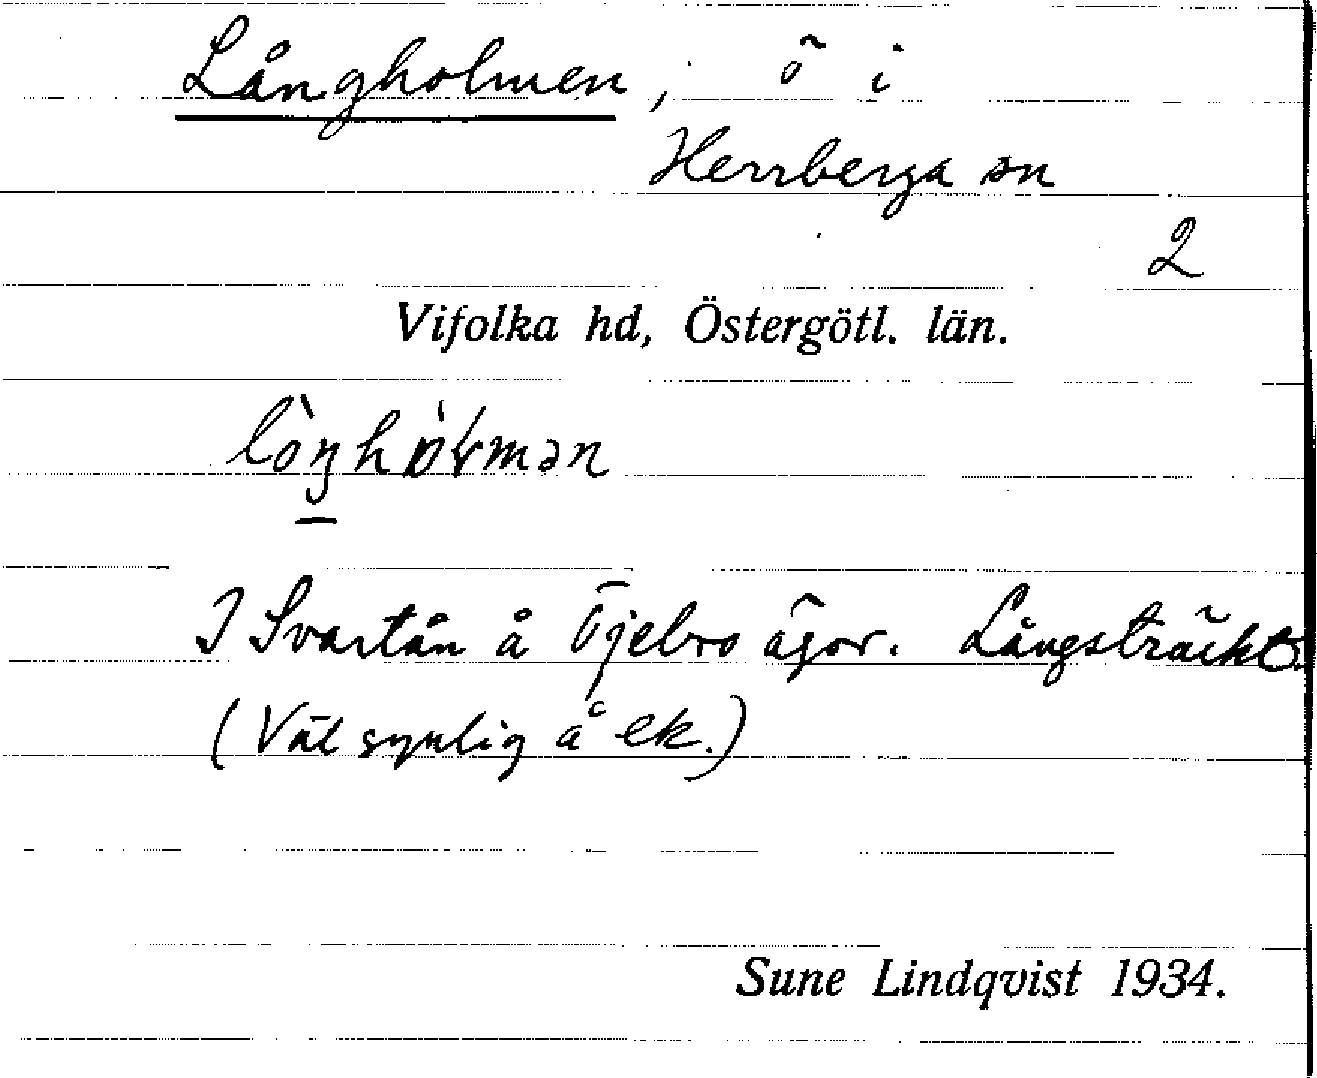 Långholmen, ö i
Herrberga sn
2
Vifolka hd, Östergötl. län.
I Svartån å Öjebro ägor. Långsträckt
(Väl synlig å ek.)
Sune Lindqvist 1934.